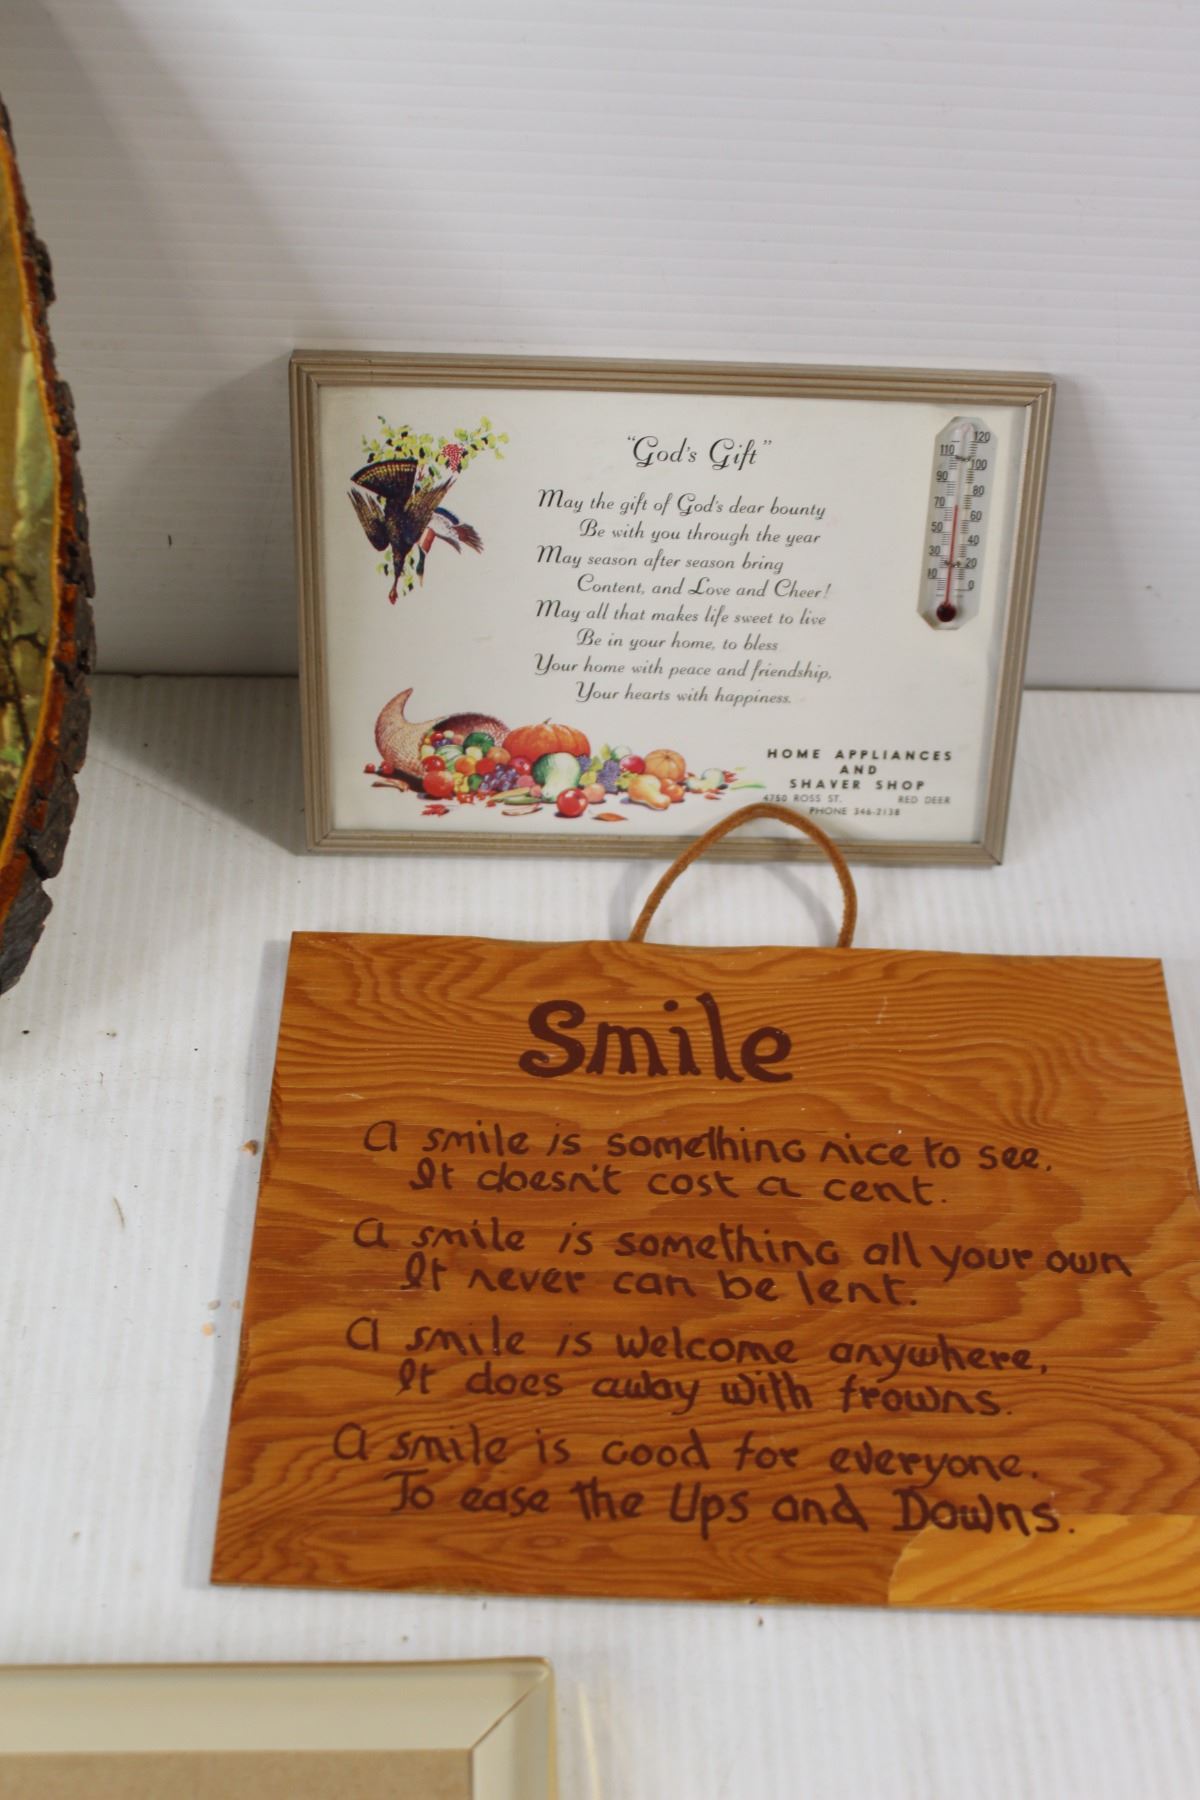 "God's Gift"
May the gift of God's dear bounty
Be with you through the year
May season after season bring
Content, and Love and Cheer!
May all that makes life sweet to live
Be in your home, to bless
Your home with peace and friendship,
Your hearts with happiness.
120
110
100
90
80
70
60
50
40
30
20
10
0
HOME APPLIANCES
AND
SHAVER SHOP
4750 ROSS ST. RED DEER
PHONE 346-2138
Smile
A smile is something nice to see.
It doesn't cost a cent.
A smile is something all your own
It never can be lent.
A smile is welcome anywhere,
It does away with frowns.
A smile is good for everyone.
To ease the Ups and Downs.